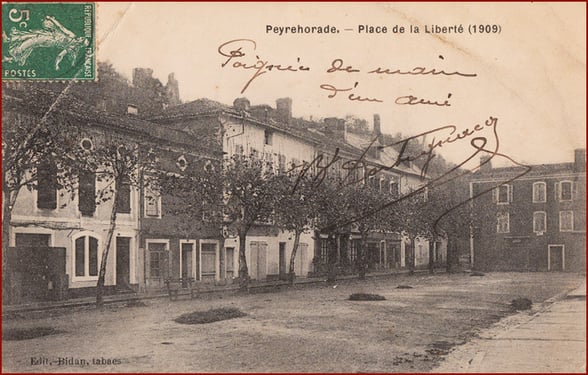 5c
POSTES
Peyrehorade. — Place de la Liberté (1909)
Poignée de main
d'un ami
Edit. Bidan, tabacs